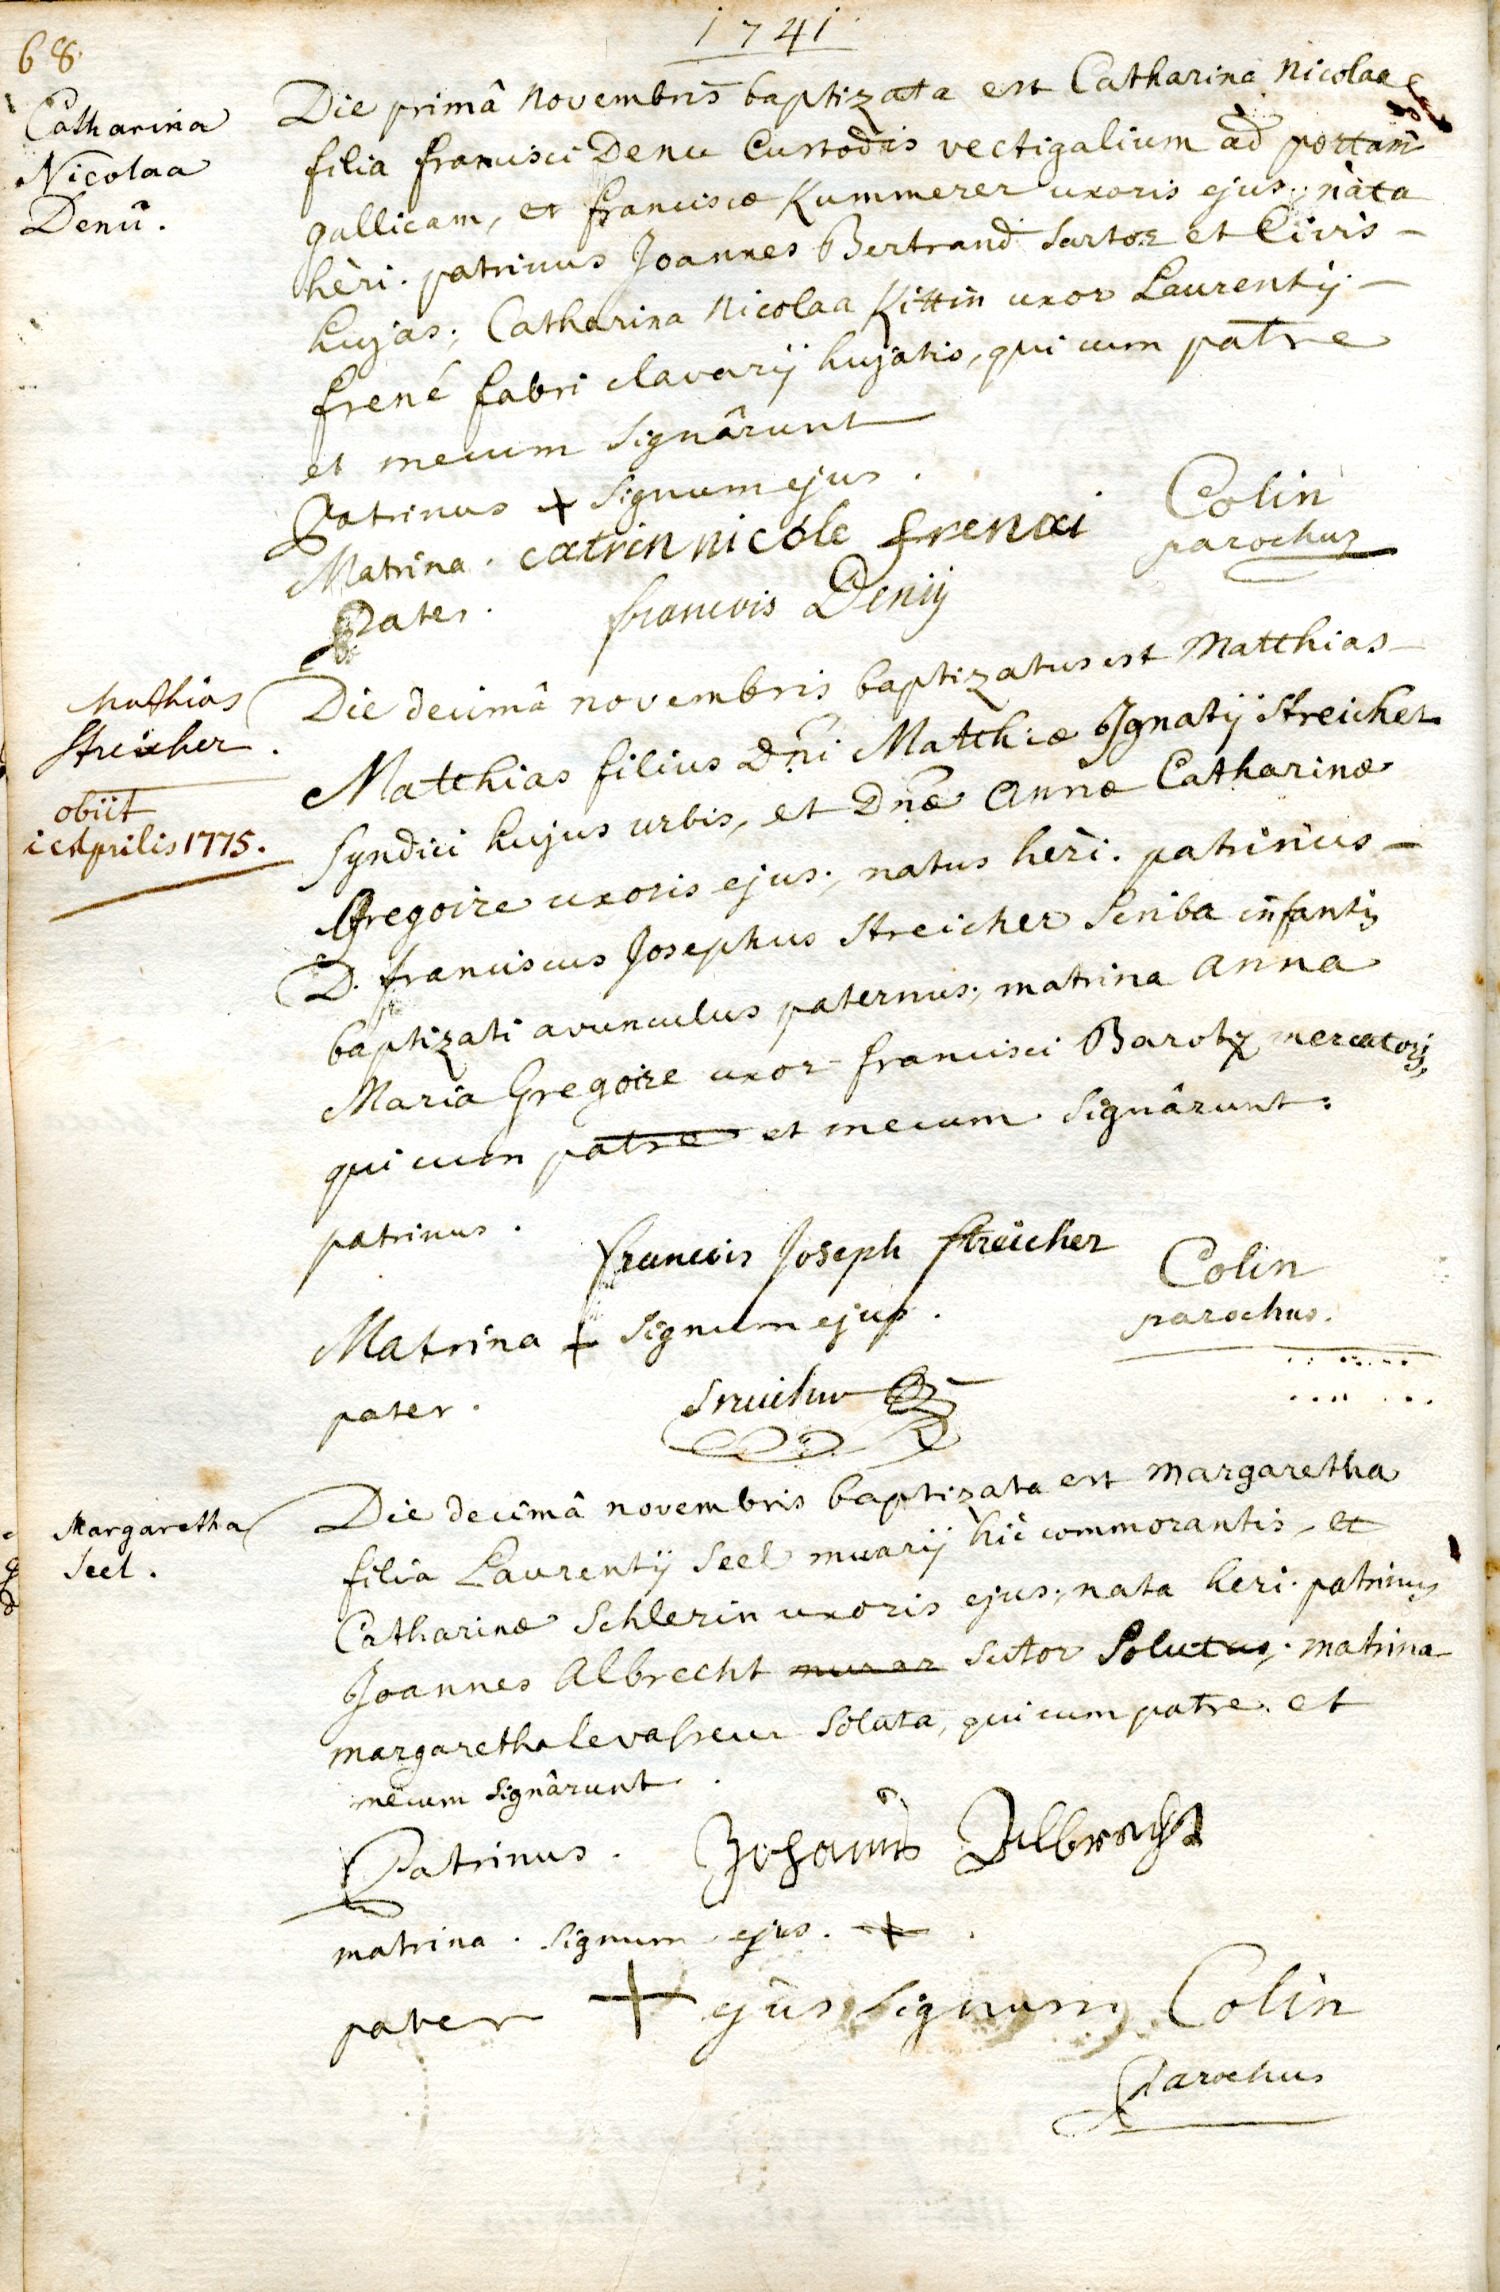 1741
68.
Catharina
Nicolaa
Denu.
Die primâ Novembris baptizata est Catharina Nicolaa
filia francisci Denu Custodis vectigalium ad portam
gallicam, et franciscæ Kummerer uxoris ejus; nata
heri. patrinus Joannes Bertrand Sartor et Civis –
hujas; Catharina Nicolaa Kittin uxor Laurentij –
frené fabri clavarij hujatis, qui cum patre
et mecum signârunt
Patrinus + signum ejus.
Matrina. catrin nicole frenai
Colin
parochus
Pater. francois Denij
Mathias
Streicher.
obiit
i Aprilis 1775.
Die decimâ novembris baptizatus est Matthias –
Matthias filius Dñi Matthiæ Ignatij Streicher
Syndici hujus urbis, et Dñæ Annæ Catharinæ
Gregoire uxoris ejus; natus heri. patrinus –
D. franciscus Josephus Streicher Scriba infantis
baptizati avunculus paternus; matrina Anna
Maria Gregoire uxor francisci Barotz mercatoris,
qui cum patre et mecum signârunt:
patrinus. francois Joseph Streicher
Colin
parochus.
Matrina + signum ejus.
pater. Streicher
Margaretha
Seel.
Die decimâ novembris baptizata est Margaretha
filia Laurentij Seel murarij hic commorantis, et
Catharinæ Schlerin uxoris ejus; nata heri. patrinus
Joannes Albrecht murar sutor Solutus; matrina
margaretha levasseur Soluta, qui cum patre et
mecum signârunt.
Patrinus. Johannes Albrecht
matrina. signum ejus. +.
pater + ejus signum
Colin
Parochus